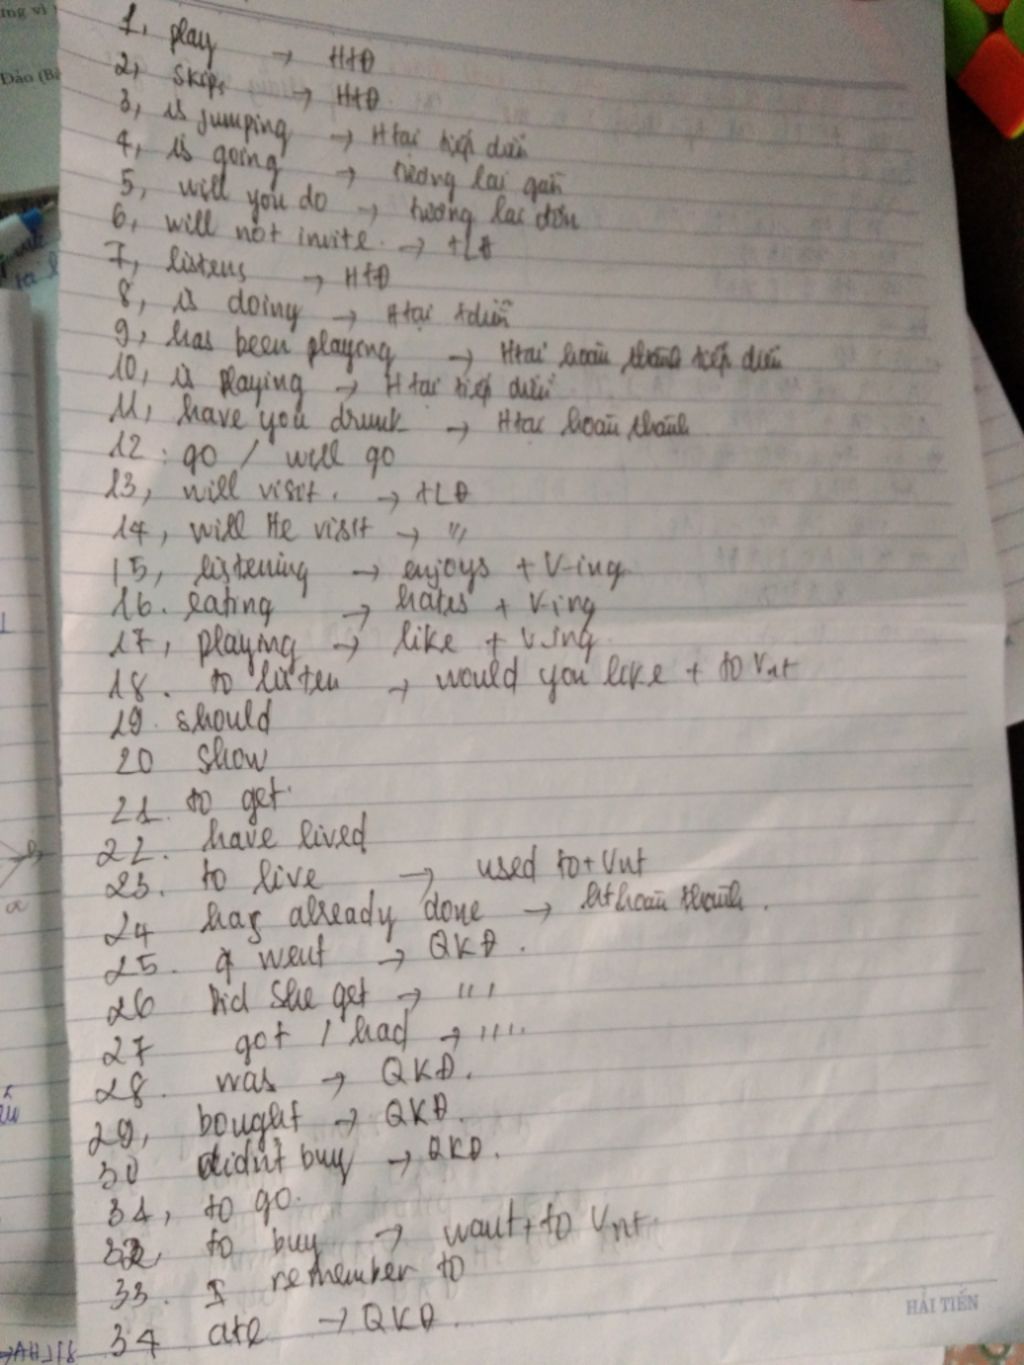 ng vì
Đảo (Bả
1, play → HTĐ
2, skips → HTĐ
3, is jumping → Htại tiếp diễn
4, is going → tương lai gần
5, will you do → tương lai đơn
6, will not invite. → TLĐ
7, listens → HTĐ
8, is doing → Htại tdiễn
9, has been playing → Htại hoàn thành tiếp diễn
10, is playing → Htại tiếp diễn
11, have you drunk → Htại hoàn thành
12: go / will go
13, will visit. → TLĐ
14, will He visit → ''
15, listening → enjoys + V-ing
16. eating → hates + V-ing
17, playing → like + Ving
18. to listen → would you like + to Vnt
19. should
20 show
21. to get.
22. have lived
23. to live → used to + Vnt
24 has already done → ht hoàn thành.
25. I went → QKĐ.
26 Did she get → '' '
27 got / had → '' ''
28. was → QKĐ.
29, bought → QKĐ.
30 didn't buy → QKĐ.
31, to go.
32, to buy → want + to Vnt
33. I remember to
34 ate → QKĐ.
HẢI TIẾN